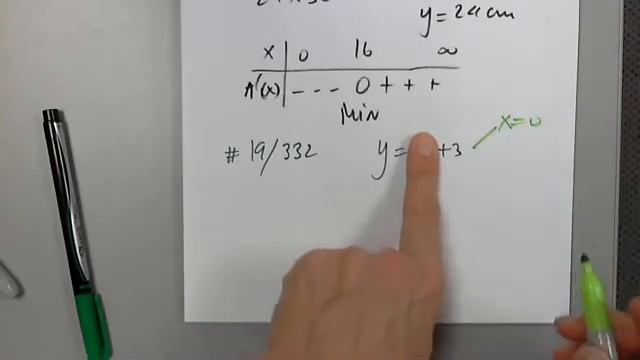 y = 24 cm
x 0 16 ∞
A'(x) - - - 0 + + +
Min
# 19/332 y = +3 x=0